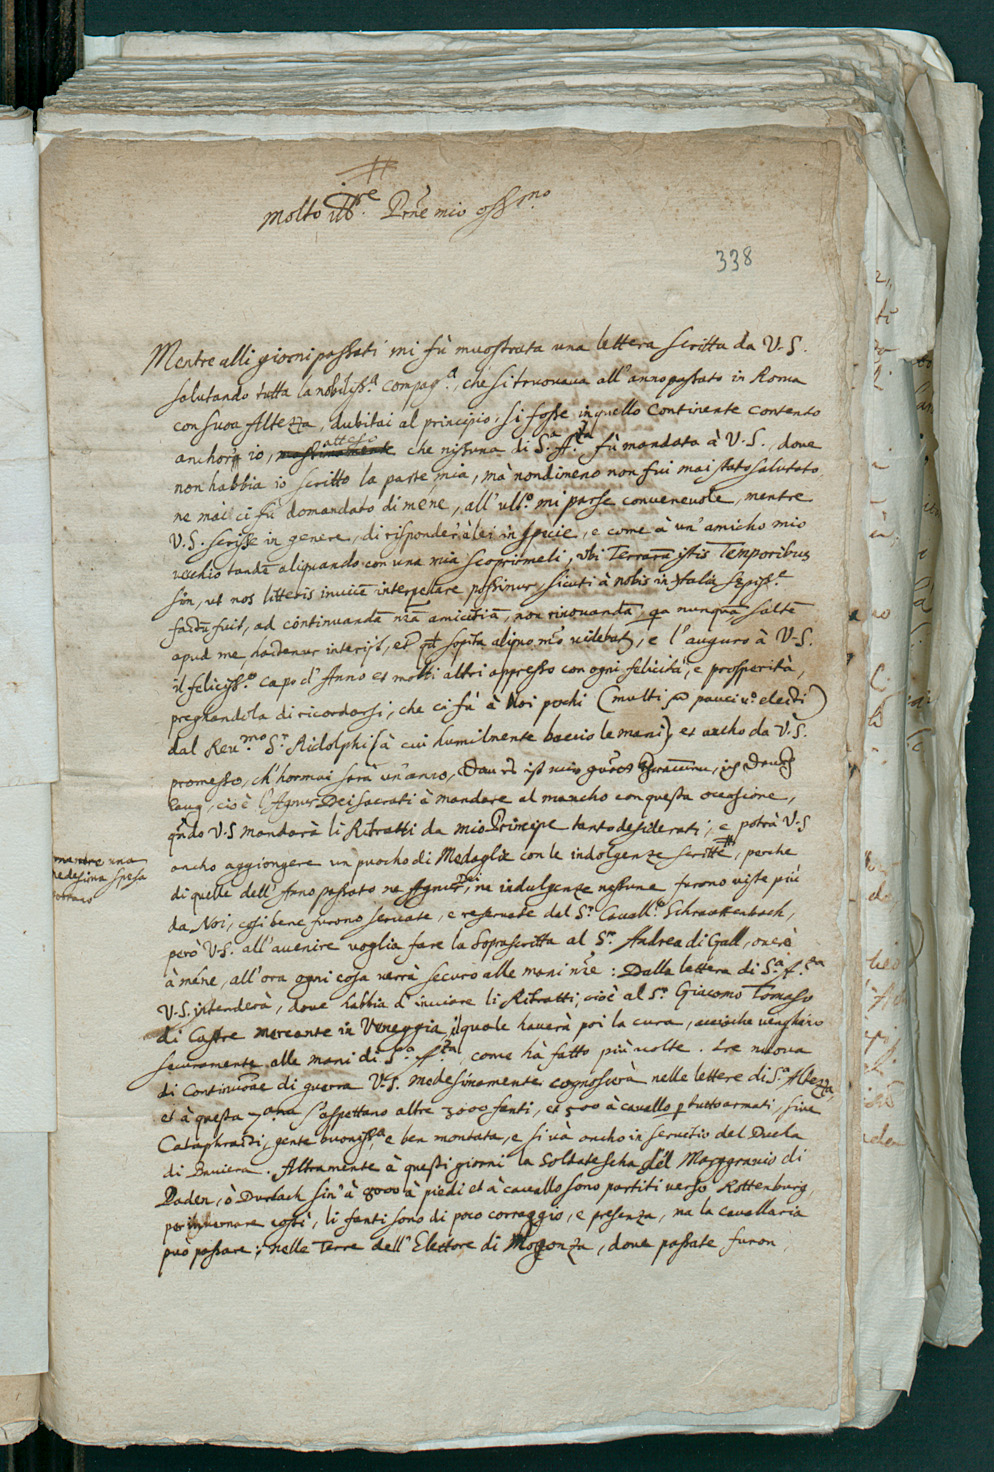 Molto ill.re Prne mio oss.mo
338
Mentre alli giorni passati mi fù muostrata una lettera scritta da V.S.
salutando tutta la nobiliss.a compag.a, che si truovava all'anno passato in Roma
con sua Altezza, dubitai al principio, si fosse in quello Continente contento
anchor io, atteso che nissuna di S.a A.za fù mandata à V.S., dove
non habbia io scritto la parte mia, mà nondimeno non fui mai stato salutato,
ne mai ci fù domandato di mene, all'ult.o mi parse convenevole, mentre
V.S. scrisse in genere, di risponder à lei in specie, e come à un' amicho mio
vechio tande aliquando con una mia scoprirmeli, ubi Terrarū istis Temporibus
sim, ut nos litteris invicē interpellare possimus, sicuti à nobis in Italia sepiss.e
factū fuit, ad continuandā nrā amicitiā, non rinovandā, qa nunquā saltē
apud me, intermist, et sopita alipuo mō videbatr, e l'auguro à V.S.
il feliciss.o capo d'Anno et molti altri appresso con ogni felicità, e prosperità,
preghandola di ricordarsi, che ci fù à Noi pochi (multi pauci v.o electi)
dal Rev.mo S.r Ridolphi (à cui humilmente bascio le mani) et ancho da V.S.
promesso, ch'hormai sarà un'anno,
cio è l'Agnus Dei sacrati à mandare al mancho con questa occasione,
qn̄do V.S mandarà li Ritratti da mio Principe tanto desiderati, e potrà V.S
ancho aggiongere un puocho di Medaglie con le indolgenze scritte #, perche
mandre una
medesima spesa
di quelle dell'Anno passato ne Agnus Dei, ne indulgenze nessune furono viste più
da Noi, cosi bene furono servate, e reservate del S.r Cavall.o Schrattenbach,
però V.S. all'avenire voglia fare la soprascritta al S.r Andrea di Gall, overo
à mène, all'ora ogni cosa verrà securo alle mani n̄re: Dalla lettera di S.a A.za
V.S. intenderà, dove habbia d'inviare li Ritratti, cioè al S.r Giacomo Tomaso
di Castre mercante in Veneggia, il quale haverà poi la cura, accioche venghino
securamente alle mani di S.a A.za, come hà fatto più volte. Le nuova
di Continuōne di guerra V.S. medesimamente cognoscerà nelle lettere di S.a Altezza,
et à questa s'aspettano altre 3000 fanti, et 500 à cavallo p tutto armati, sive
Cataphracti, gente buoniss.a e ben montata, e si và ancho in servitio del Ducha
di Baviera. Altramente à questi giorni la Soldatescha del Marggravio di
Baden, ò Durlach sin'à 8000 à piedi et à cavallo sono partiti verso Rottenburg,
per invernare costì, li fanti sono di poco corraggio, e presenza, ma la cavallaria
puo passare: nelle Terre dell'Elettore di Mogonza, dove passate furon